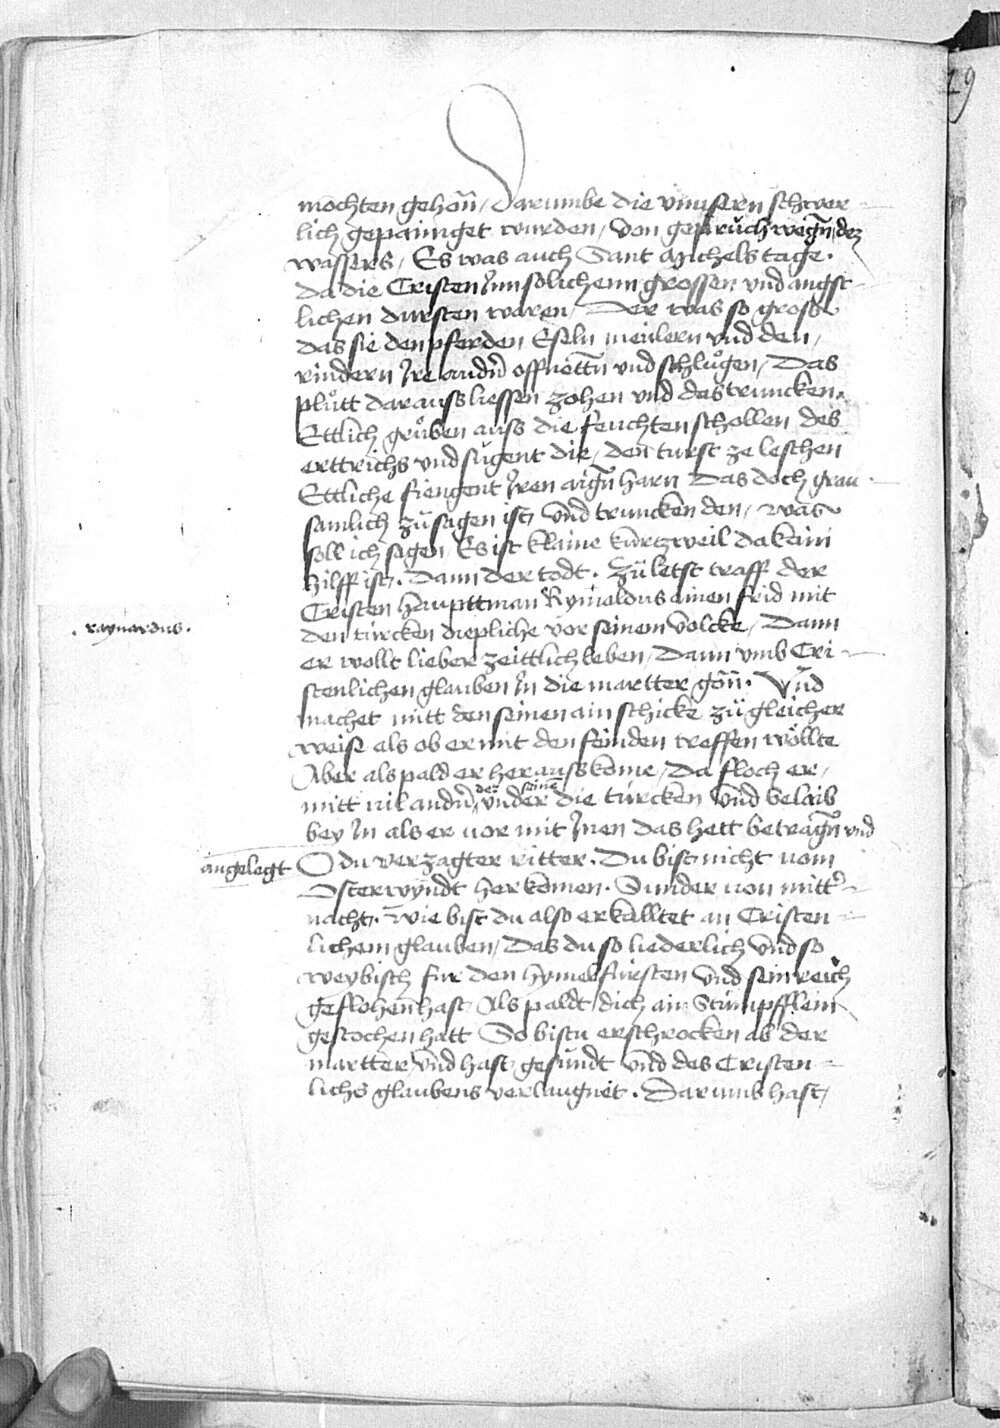 19
mochten gehoͤn̄ / Darumbe die vnnsern schwer
lich gepainiget wurden / Von gepruͤch wegn̄ dez
wassers / Es was auch Sant Michels tage ·
da die Cristen Jnn solichenn grossen vnd angst
lichen dursten waren / Der was so gross
das sie den pferden Eseln meulern vnd den /
rindern Jre andn̄ offnettn̄ vnd schluͦgen / Das
pluͦtt darauss liessen zohen vnd das truncken.
Ettlich gruͦben auss die feuchten schollen des
erttrichs vnd sugent die / den turst ze leschen
Ettliche fiengent Jren aign̄ harn Das doch grau
samlich zuͤ sagen ist / Vnd truncken den / was
soll ich sagen / Es ist klaine kurtzweil da kain
hilff ist / Dann der todt · Zuͤ letst traff der
Cristen haupttman Rynaldus ainen frid mit
. raynardus .
den türcken diepliche vor seinem Volcke / Dann
er wollt lieber zeittlich leben / Dann vmb Cri
stenlichen glauben Jn die martter gōn̄ · Vnd
machet mitt den seinen ain schicke zuͤ gleicher
weise als ob er mit den feinden treffen woͤllte
Aber als pald er herauss kome / Da floch er /
mitt vil andn̄ der seinē vnder die türcken Vnd belaib
bey Jn als er vor mit Jnen das hett betragn̄ vnd
angelegt O du verzagter ritter . Du bist nicht vom
Osterwyndt her komen · Sunder von mittr̄
nacht · Wie bist du also erkalltet an Cristen
lichem glauben / Das du so liederlich Vnd so
weybisch fur den hymelfürsten Vnd sein reich
geflohen hast Als paldt dich ain Stumpfflein
gestochen hatt So bistu erschrocken ab der
martter / Vnd hast gesundt Vnd des Cristen
lichs glaubens verlaugnet . Darumb hast /